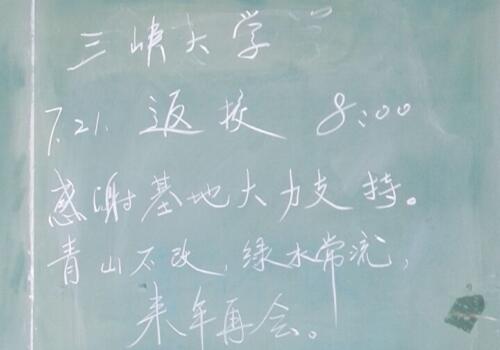 三峡大学
7.21. 返校 8:00
感谢基地大力支持。
青山不改,绿水常流,
来年再会。